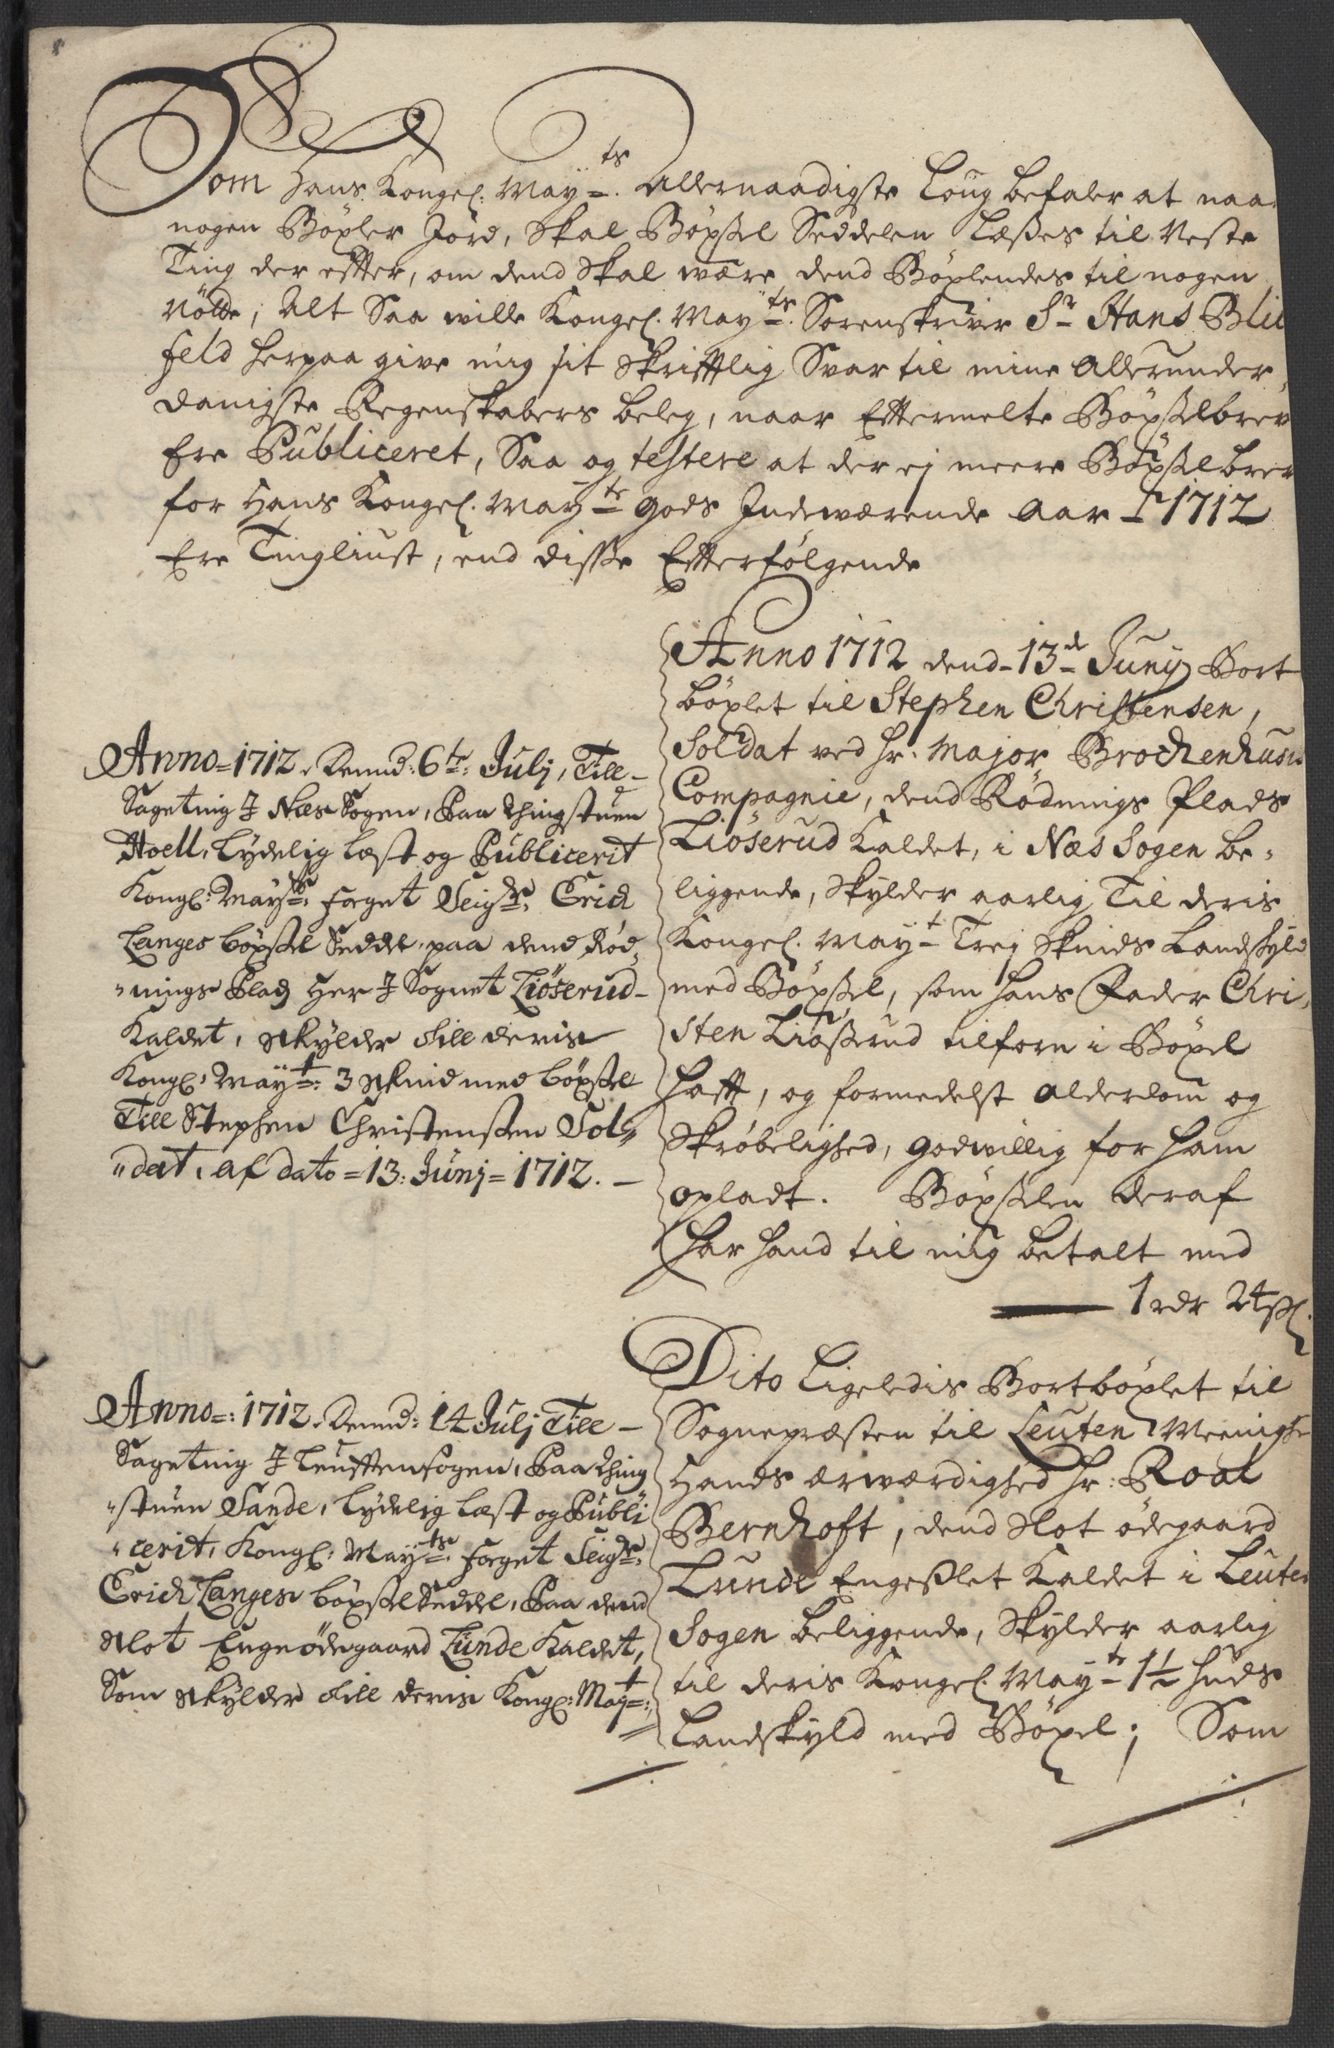 Som Hans Kongel. May.ts Allernaadigste Loug befaler at naa
nogen Böxler Jord, Skal Böxsel Seddelen Læsses til Neste
Ting der effter, om dend Skal være dend Böxlendes til nogen
Nötte; Alt Saa wille Kongel. May.ts Sorenskriver Sr Hans Blic
feld herpaa give mig sit Skrifftlig Svar til mine Allerunder,,
danigste Regenskabers beleg, naar Effterermelte Böxselbrev
Ere Publiceret, Saa og testere at der ej meere Böxselbrev
for Hans Kongel. May.ts Gods Indeværende Aar 1712
Ere Tingliust, end disse Effterfølgende
Anno 1712 dend 13de Junij Bort
böxlet til Stephen Christensen,
Soldat ved hr. Major Brochenhuus
Compagnie, dend Rödnings Plads
Liöserud Kaldet, i Næs Sogen be,,
liggende, Skylder aarlig Til deris
Kongel. May.t Trej Skinds Landskyld
med Böxsel, som hans Fader Chri,,
sten Liösserud tilforn i Böxel
hafft, og formedelst Alderdom og
Skröbelighed, godwillig for ham
opladt. Böxselen deraf
har hand til mig betalt med
1 rdr 24 sl.
Anno=1712. Dennd: 6te: Julj, Till-
Sageting J Næs Sogen, Paa thingstuen
Hoell, Lydelig Læst og Publicerit
Kongl: Mayts: foget Seigr. Erich
Langes böxsel Seddel, paa dend Röd,,
,,nings Plads Her J Sognet Liöserud-
Kaldet, skylder till deris
Kongl: May.t: 3 skind med böxsel
Till Stephen Christenssen Sol,,
,,dat, af dato=13: Junj=1712.-
Dito Ligeledis Bortböxlet til
Sognepræsten til Leuten Meenighe
Hands ærværdighed Hr: Roal
Bernhoft, dend Slot ödegaard
Lunde Engesslet Kaldet i Leuten
Sogen beliggende, Skylder aarlig
til deris Kongel. May.ts 1½ Huds
Landskyld med Böxel; Som
Anno=: 1712. Dennd: 14 Julj Till-
Sageting J Leuttensogen, Paa thing
,,stuen Sande, Lydelig Læst og Publi
,,cerit, Kongl: May.ts: foget Seigr:
Erich Langes böxselseddel, Paa dend
slot Engeödegaard Lunde Kaldet,
Som skylder till deris Kongl: May.t: